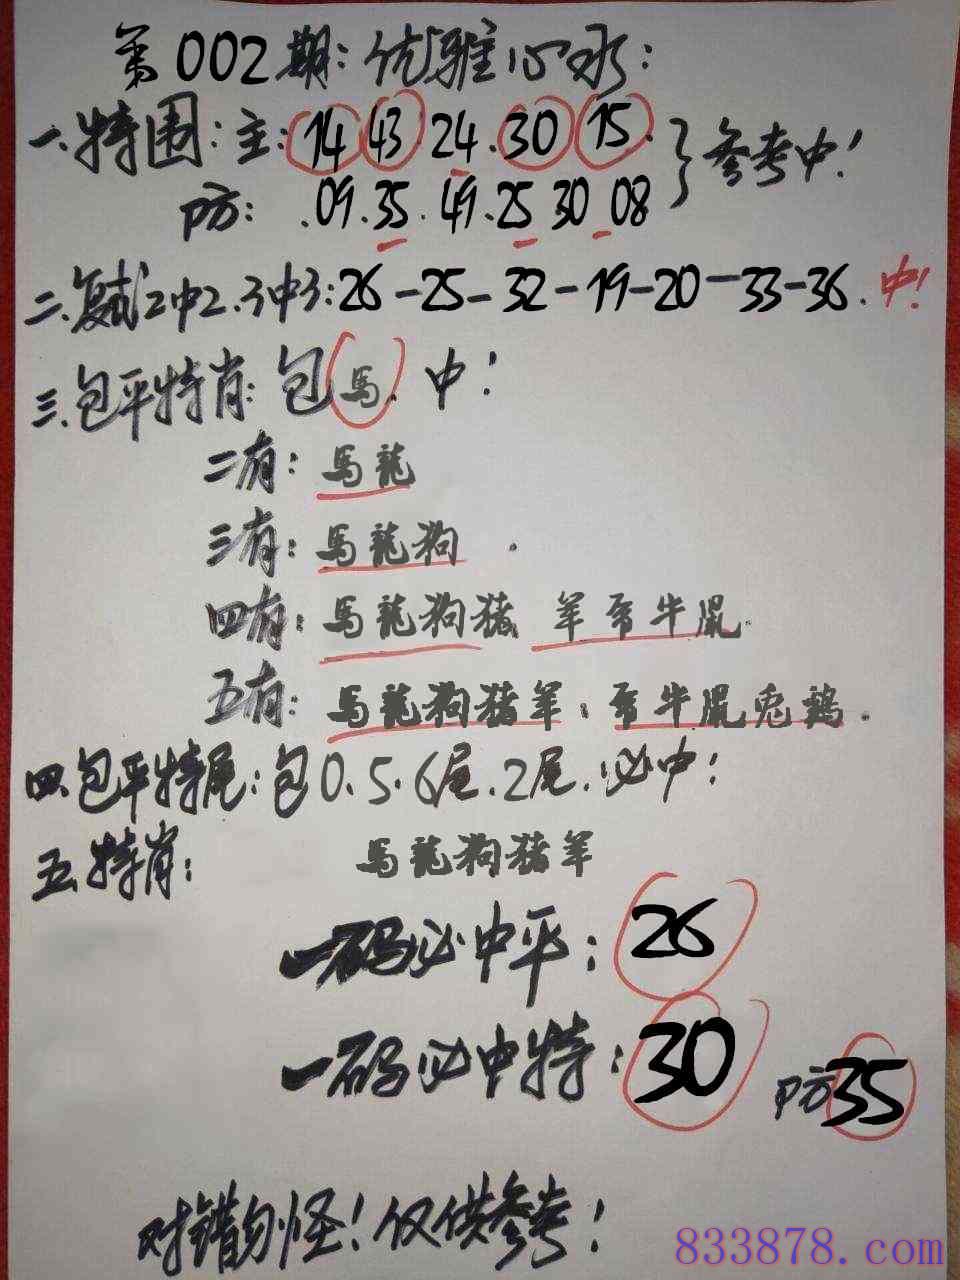 第002期:优雅心水:
一.特围:主:14 43 24.30 15.}参考中!
防:.09.35.49.25 30 08
二.复试2中2.3中3:26-25-32-19-20-33-36.中!
三.包平特肖:包馬.中!
二有:馬龍
三有:馬龍狗.
四有:馬龍狗猪 羊 牛鼠.
五有:馬龍狗猪羊: 牛鼠兎鷄.
四.包平特尾:包0.5.6尾.2尾.必中!
五.特肖:馬龍狗猪羊
一码必中平:26
一码必中特:30 防35
对错勿怪!仅供参考!
833878.com